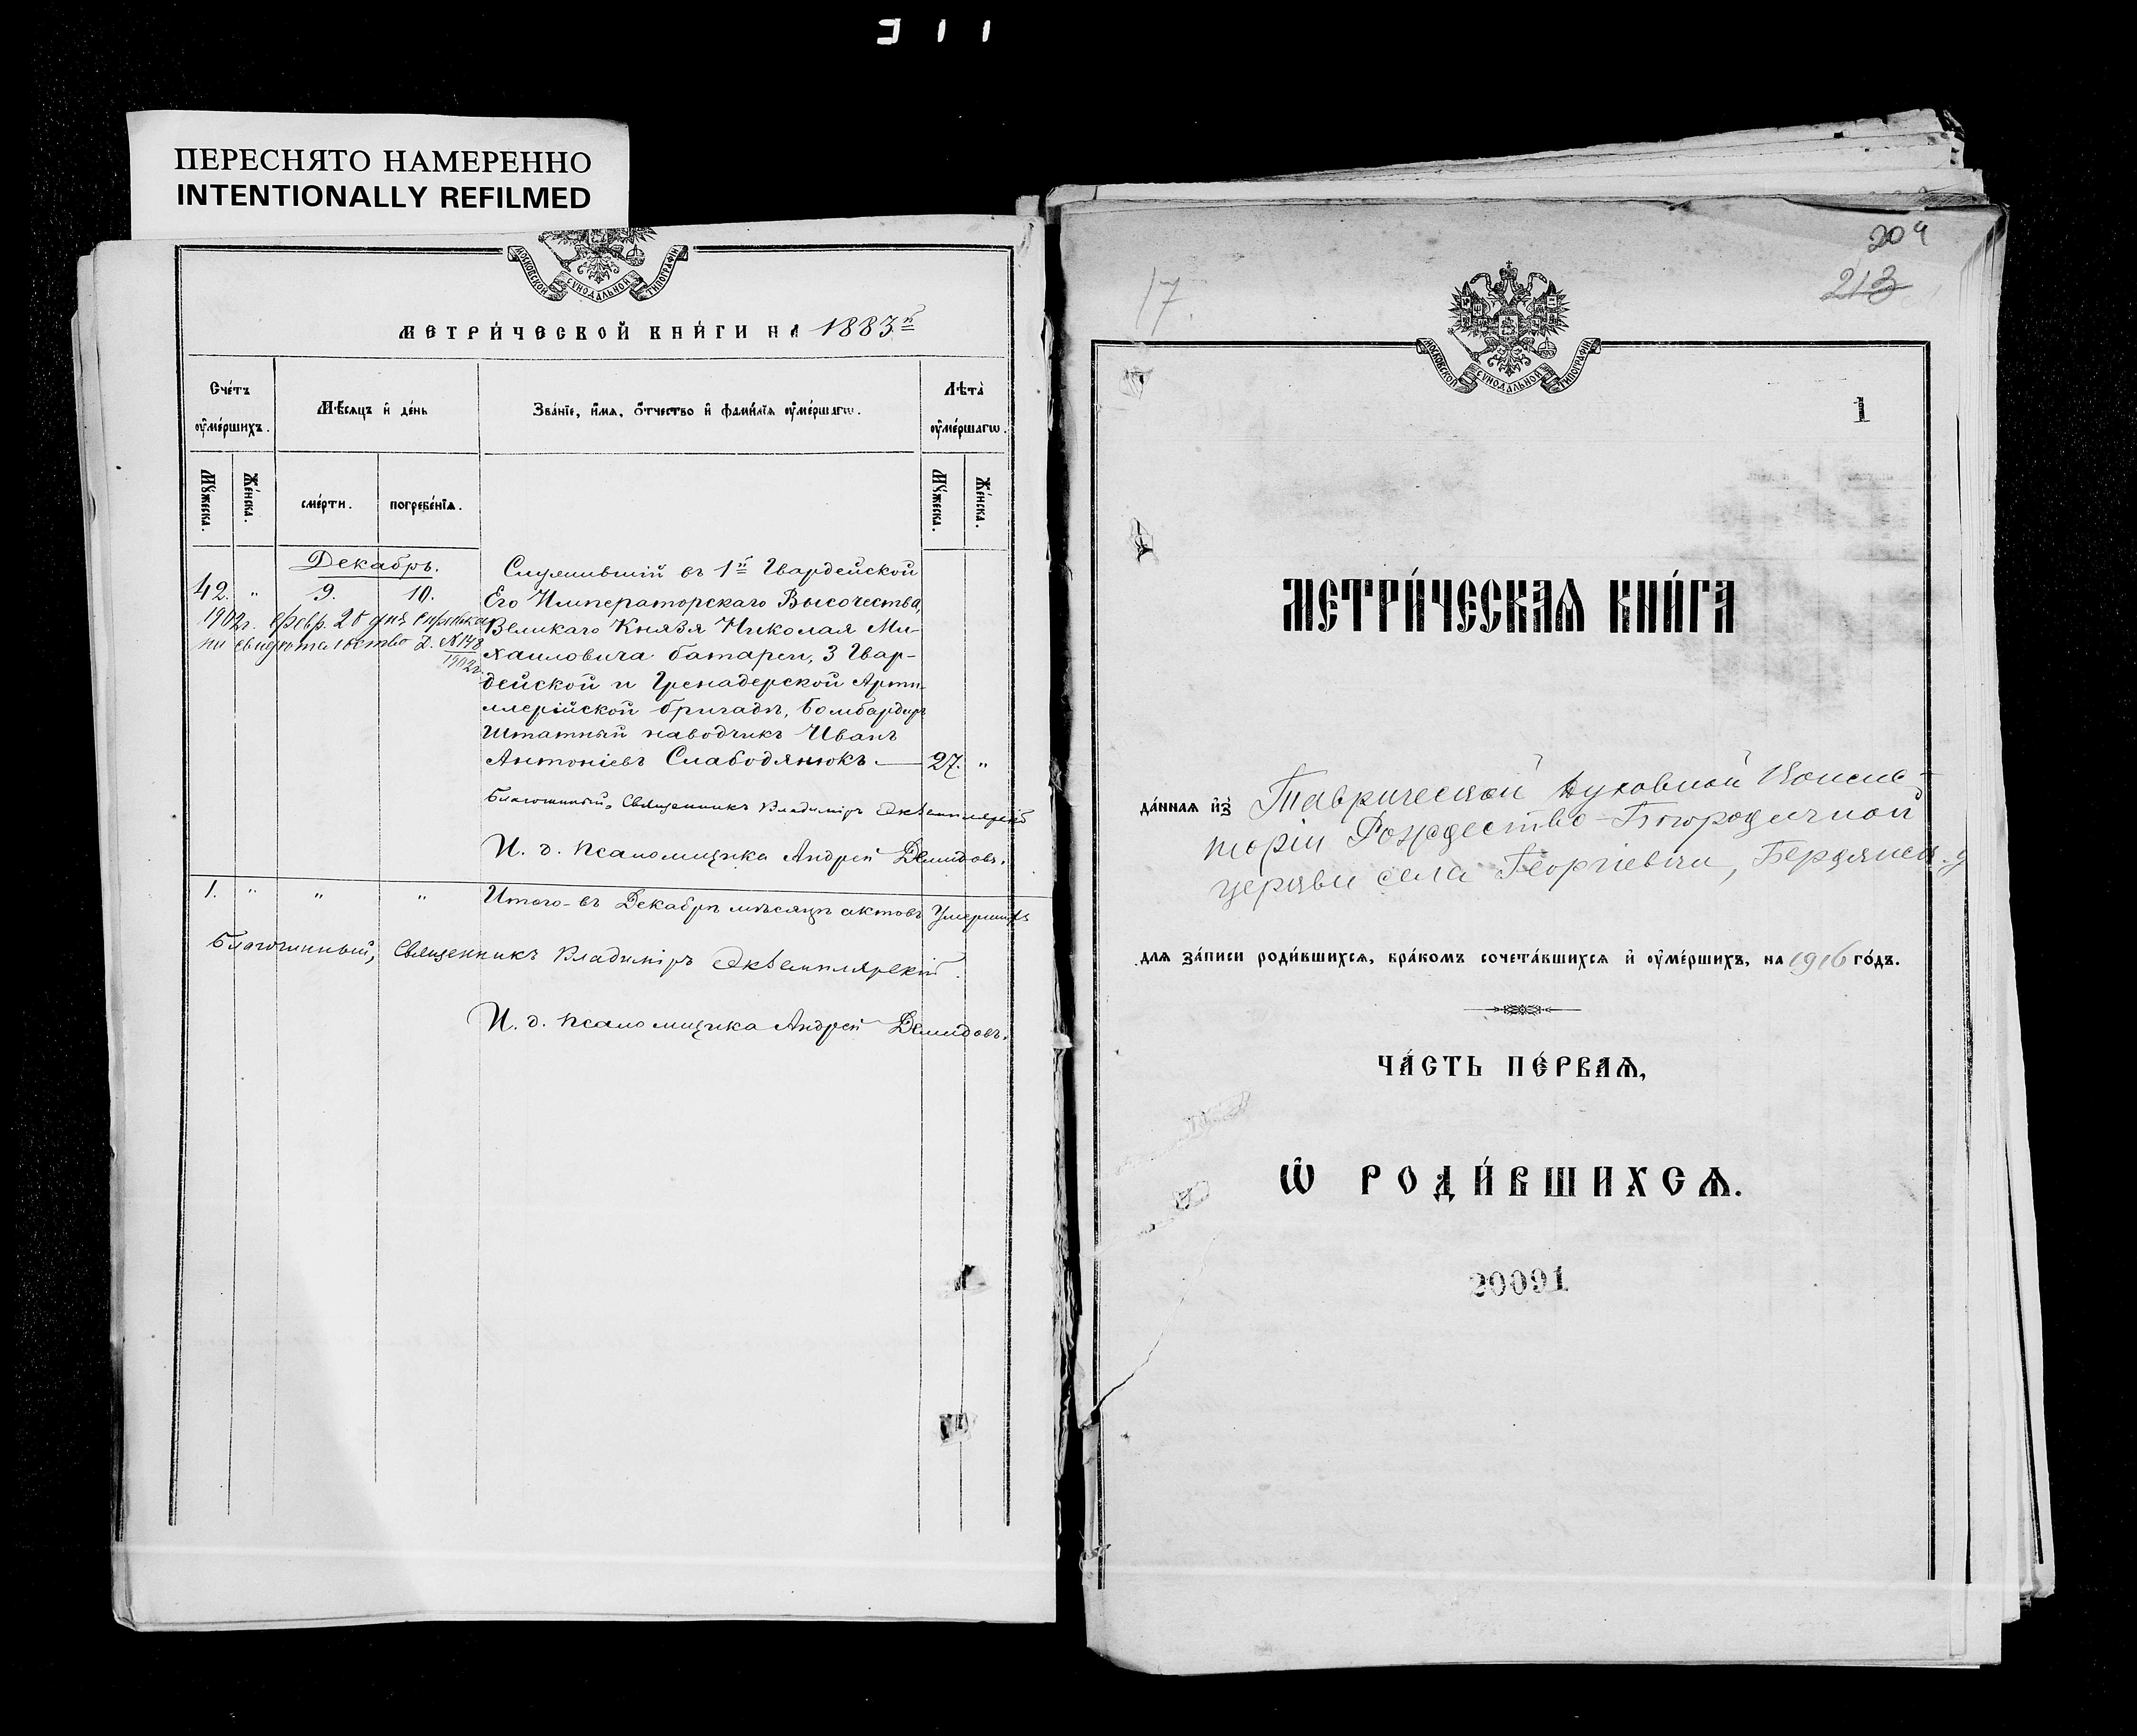 ПЕРЕСНЯТО НАМЕРЕННО
INTENTIONALLY REFILMED
МОСКОВСКОЙ СѴНОДАЛЬНОЙ ТИПОГРАФІИ
МЕТРИ́ЧЕСКОЙ КНИ́ГИ НА 1883й
Сче́тъ ᲂу҆ме́ршихъ.
Мѣ́сяцъ и҆ де́нь
Зва́нїе, и҆́мѧ, ѻ҆́тчество и҆ фами́лїѧ ᲂу҆ме́ршагѡ.
Лѣта̀ ᲂу҆ме́ршагѡ.
Му́жеска.
Же́нска.
сме́рти.
погребе́нїѧ.
Му́жеска.
Же́нска.
Декабрь.
42. " 9. 10.
1902г. февр. 20 дня
свидѣтельство Д. №148
1902г.
Служившій въ 1й Гвардейской
Его Императорскаго Высочества,
Великаго Князя Николая Ми-
хаиловича батареи, 3 Гвар-
дейской и Гренадерской Арти-
ллерійской бригады, бомбардиръ
Штатный наводчикъ Иванъ
Антоніевъ Слабодянюкъ. — 27. "
Благочинный, Священникъ Владиміръ Экземплярскій
И. д. псаломщика Андрей Демидовъ.
1. " " " Итого въ Декабрѣ мѣсяцѣ актовъ Умершихъ
Благочинный, Священникъ Владиміръ Экземплярскій.
И. д. псаломщика Андрей Демидовъ.
209
213
17.
МОСКОВСКОЙ СѴНОДАЛЬНОЙ ТИПОГРАФІИ
1
МЕТРИ́ЧЕСКАѦ КНИ́ГА
да́нная и҆з̾ Таврической Духовной Консис-
торіи Рождество-Богородичной
церкви села Георгіевки, Бердянск. у
для за́писи роди́вшихсѧ, бра́комъ сочета́вшихсѧ и҆ ᲂу҆ме́ршихъ, на 1916 го́дъ.
ЧА́СТЬ ПЕ́РВАѦ,
Ѽ РОДИ́ВШИХСѦ.
20091